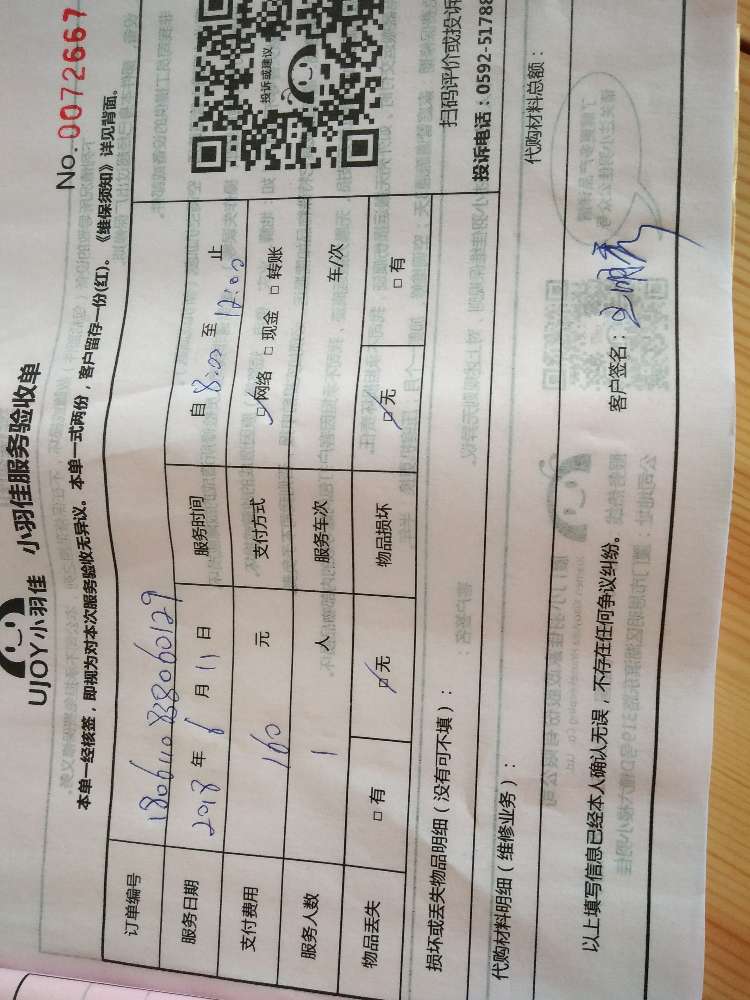 No. 0072667
UJOY小羽佳 小羽佳服务验收单
本单一经核签，即视为对本次服务验收无异议。本单一式两份，客户留存一份(红)。《维保须知》详见背面。
订单编号
服务日期 2018 年 6 月 11 日 服务时间 自 8:00 至 12:00 止
支付费用 160 元 支付方式 网络 □ 现金 □ 转账
服务人数 1 人 服务车次 车/次
物品丢失 □ 有 无 物品损坏 无 □ 有
投诉或建议
扫码评价或投诉
投诉电话：0592-51788
损坏或丢失物品明细（没有可不填）：
代购材料明细（维修业务）： 代购材料总额：
以上填写信息已经本人确认无误，不存在任何争议纠纷。 客户签名：